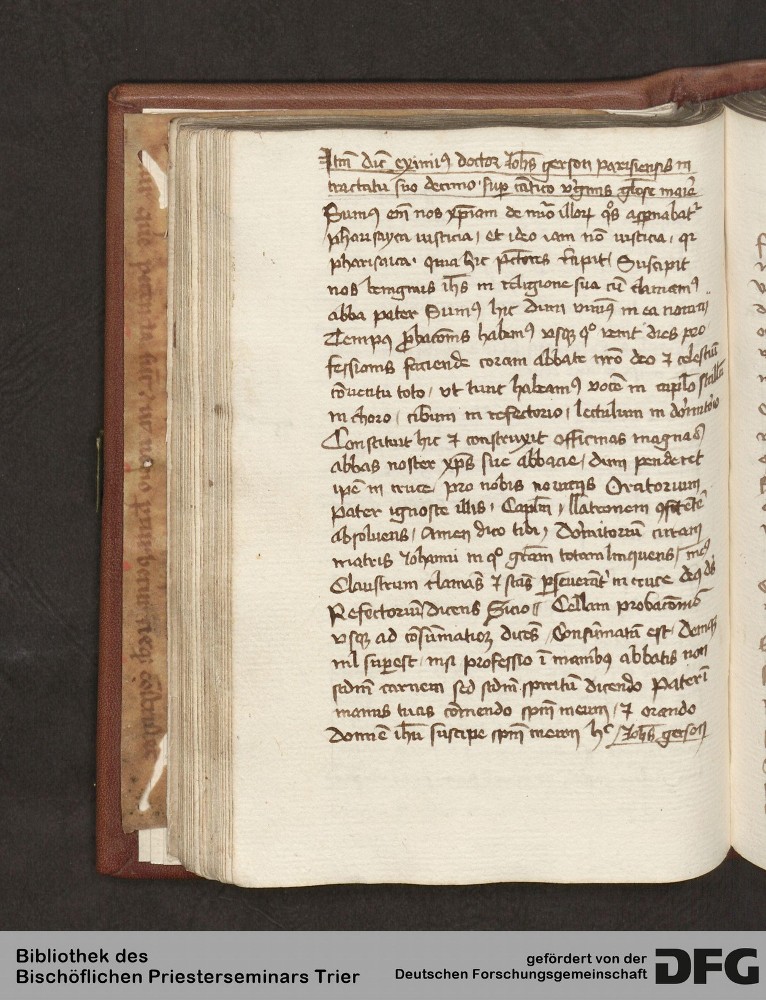 Itm dic eximius doctor Johs gerson parisiensis in
tractatu suo decimo sup cantico virginis glose marie
Sumus em nos xpiam de nro illorum qos assignabat
pharisayca iusticia, et ideo iam non iusticia, qr
pharisaica. quia hic pctores recipit, Suscipit
nos benignus ihs in religione sua cu clamamus
abba pater Sumus hic dum vivimus in ea novicii
Tempus probacionis habemus usque quo venit dies pro
fessionis faciende coram abbate nro deo et celestium
conventu toto, ut tunc habeamus vocem in caplo stallum
in choro, cibum in refectorio, lectulum in dormitorio
Constituit hic et construxit officinas magnas
abbas noster xps sue abbacie, dum penderet
ipse in cruce pro nobis noviciis Oratorium
pater ignosce illis, Caplm, llatronem confitentem
absolvens, Amen dico tibi, Dormitorium curam
matris Johanni in quo gram totam linquens,
Claustrum clamans et stans perseveranter in cruce deus ds
Refectorium dicens Sicio Cellam probacionis
usque ad consummacionem dicens Consummatum est. Demum
nil superest nisi professio in manibus abbatis non
scdm carnem sed scdm spiritum dicendo Pater i
manus tuas comendo spm meum, et orando
Domine ihu suscipe spm meum hec Johs gerson
Bibliothek des
Bischöflichen Priesterseminars Trier
gefördert von der
Deutschen Forschungsgemeinschaft
DFG